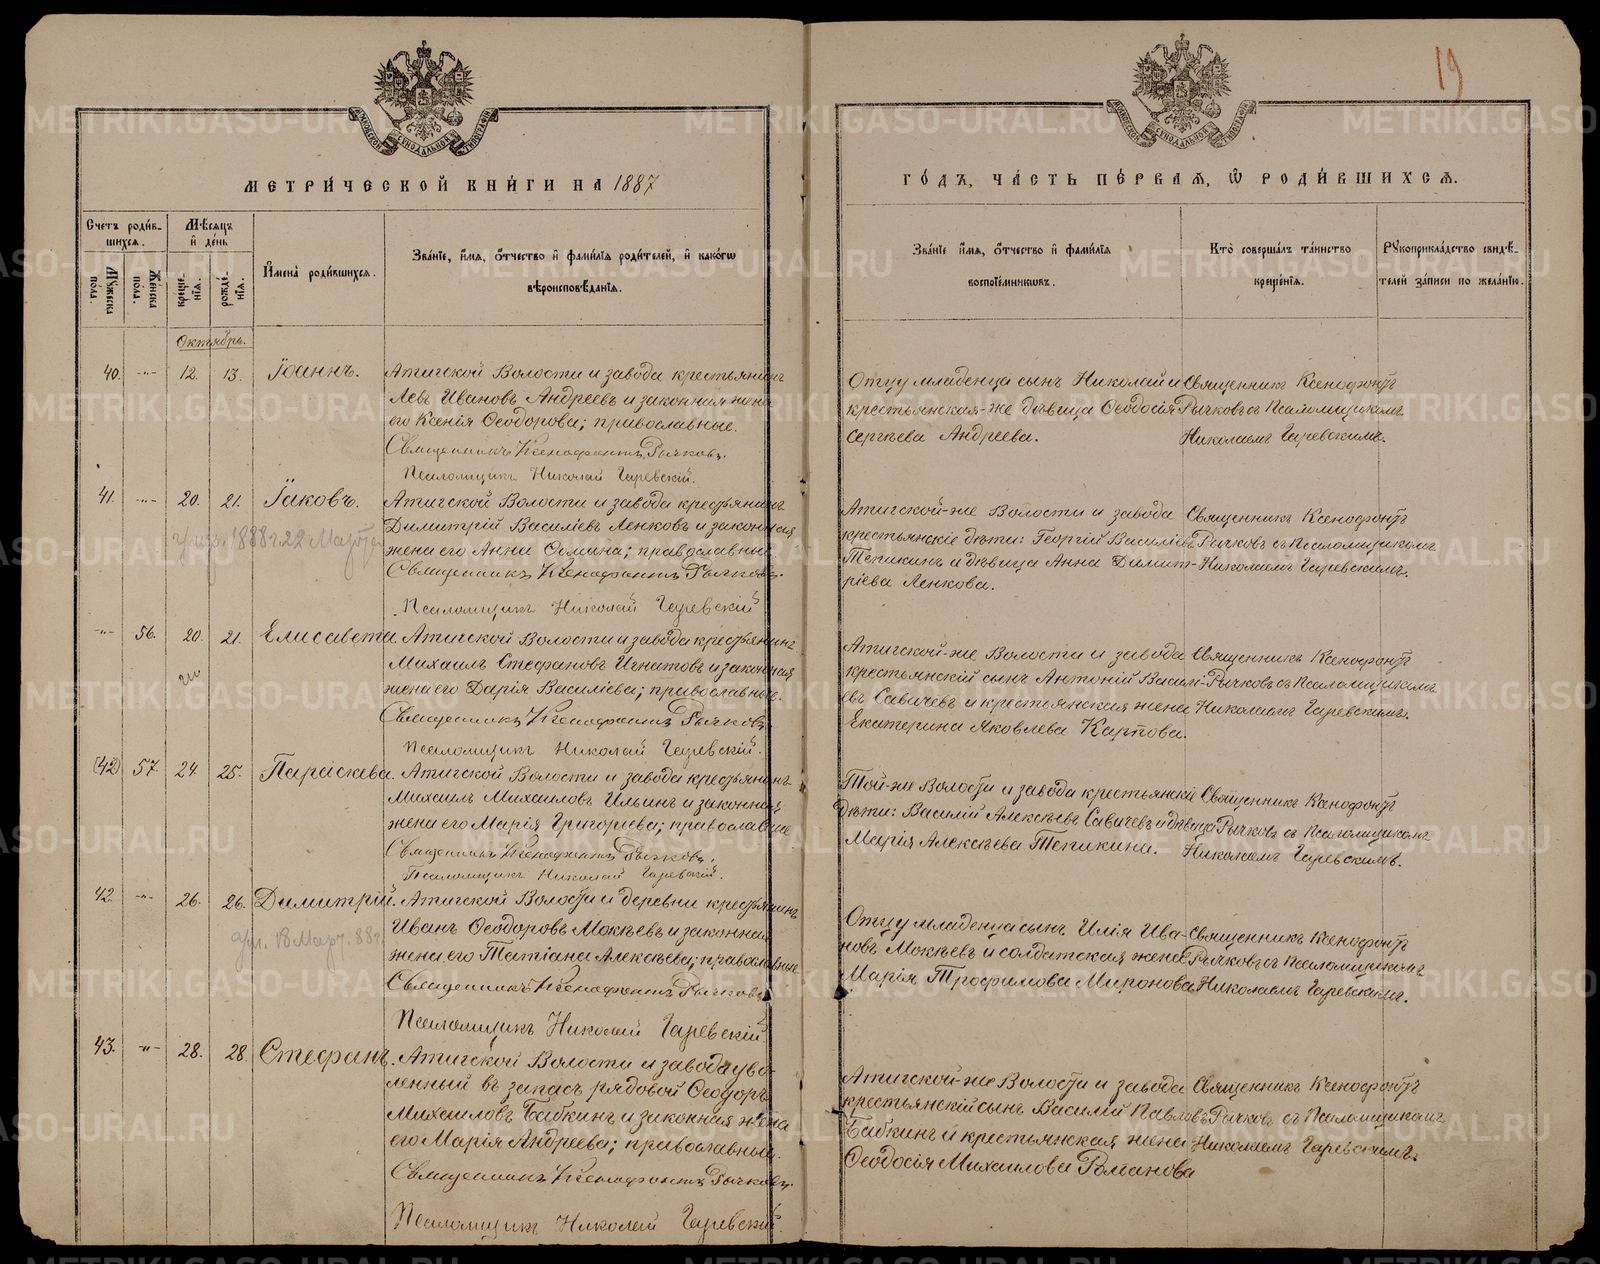 19
МОСКОВСКОЙ СѴНОДАЛЬНОЙ ТИПОГРАФІИ
МОСКОВСКОЙ СѴНОДАЛЬНОЙ ТИПОГРАФІИ
МЕТРИ́ЧЕСКОЙ КНИ́ГИ НА 1887
ГО́ДЪ, ЧА́СТЬ ПЕ́РВАѦ, Ѽ РОДИ́ВШИХСѦ.
Счетъ роди́в-
шихсѧ.
Мѣ́сѧцъ
и҆ де́нь
Мꙋ́жеска
пола.
Же́нска
пола.
креще́-
нїѧ.
рожде́-
нїѧ.
И҆мена̀ роди́вшихсѧ.
Зва́нїе, и҆́мѧ, ѻ҆́тчество и҆ фами́лїѧ роди́телей, и҆ како́гѡ
вѣроисповѣ́данїѧ.
Зва́нїе и҆́мѧ, ѻ҆́тчество и҆ фами́лїѧ
воспрїе́мникѡвъ.
Кто̀ соверша́лъ та́инство
креще́нїѧ.
Рꙋкоприкла́дство свидѣ́-
телей за́писи по жела́нїю.
Октябрь.
40. -"- 12. 13. Іоаннъ.
Атигской Волости и завода крестьянинъ
Левъ Ивановъ Андреевъ и законная жена
его Ксенія Ѳеодорова; православные.
Священникъ Ксенофонтъ Рычковъ.
Псаломщикъ Николай Гаревскій.
Отцу младенца сынъ Николай и
крестьянская-же дѣвица Ѳеодосія
Сергѣева Андреева.
Священникъ Ксенофонтъ
Рычковъ съ Псаломщикомъ
Николаемъ Гаревскимъ.
41. -"- 20. 21. Іаковъ.
1888 г. 22 Марта
Атигской Волости и завода крестьянинъ
Димитрій Василіевъ Ленковъ и законная
жена его Анна Ѳомина; православные
Священникъ Ксенофонтъ Рычковъ.
Псаломщикъ Николай Гаревскій
Атигской-же Волости и завода
крестьянскіе дѣти: Георгій Василіевъ
Тепикинъ и дѣвица Анна Димит-
ріева Ленкова.
Священникъ Ксенофонтъ
Рычковъ съ Псаломщикомъ
Николаемъ Гаревскимъ.
-"- 56. 20. 21. Елисавета
Атигской Волости и завода крестьянинъ
Михаилъ Стефановъ Игнатовъ и законная
жена его Дарія Василіева; православные.
Священникъ Ксенофонтъ Рычковъ
Псаломщикъ Николай Гаревскій.
Атигской-же Волости и завода
крестьянскій сынъ Антоній Васили-
евъ Савичевъ и крестьянская жена
Екатерина Яковлева Карпова.
Священникъ Ксенофонтъ
Рычковъ съ Псаломщикомъ
Николаемъ Гаревскимъ.
(42) 57. 24. 25. Параскева.
Атигской Волости и завода крестьянинъ
Михаилъ Михаиловъ Ильинъ и законная
жена его Марія Григоріева; православные
Священникъ Ксенофонтъ Рычковъ.
Псаломщикъ Николай Гаревскій.
Той-же Волости и завода крестьянскіе
дѣти: Василій Алексѣевъ Савичевъ и дѣвица
Марія Алексѣева Тепикина.
Священникъ Ксенофонтъ
Рычковъ съ Псаломщикомъ
Николаемъ Гаревскимъ.
42. -"- 26. 26. Димитрій.
Атигской Волости и деревни крестьянинъ
Иванъ Ѳеодоровъ Мокѣевъ и законная
жена его Татіана Алексѣева; православные
Священникъ Ксенофонтъ Рычковъ
Псаломщикъ Николай Гаревскій
Отцу младенца сынъ Илія Ива-
новъ Мокѣевъ и солдатская жена
Марія Трофимова Миронова
Священникъ Ксенофонтъ
Рычковъ съ Псаломщикомъ
Николаемъ Гаревскимъ.
43. -"- 28. 28. Стефанъ.
Атигской Волости и завода уво-
ленный въ запасъ рядовой Ѳеодоръ
Михаиловъ Бабкинъ и законная жена
его Марія Андреева; православные.
Священникъ Ксенофонтъ Рычковъ.
Псаломщикъ Николай Гаревскій.
Атигской-же Волости и завода
крестьянскій сынъ Василій Павловъ
Бабкинъ и крестьянская жена
Ѳеодосія Михаилова Романова
Священникъ Ксенофонтъ
Рычковъ съ Псаломщикомъ
Николаемъ Гаревскимъ.
METRIKI.GASO-URAL.RU